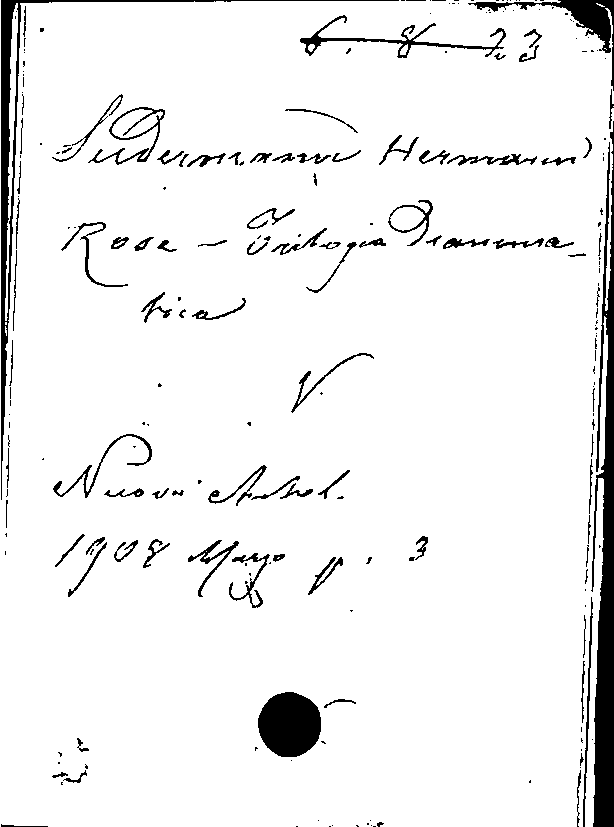 6. 8. 23
Sudermann Hermann
Rose - Trilogia Dramma-
tica
V.
Nuova Antol.
1908 Marzo p. 3